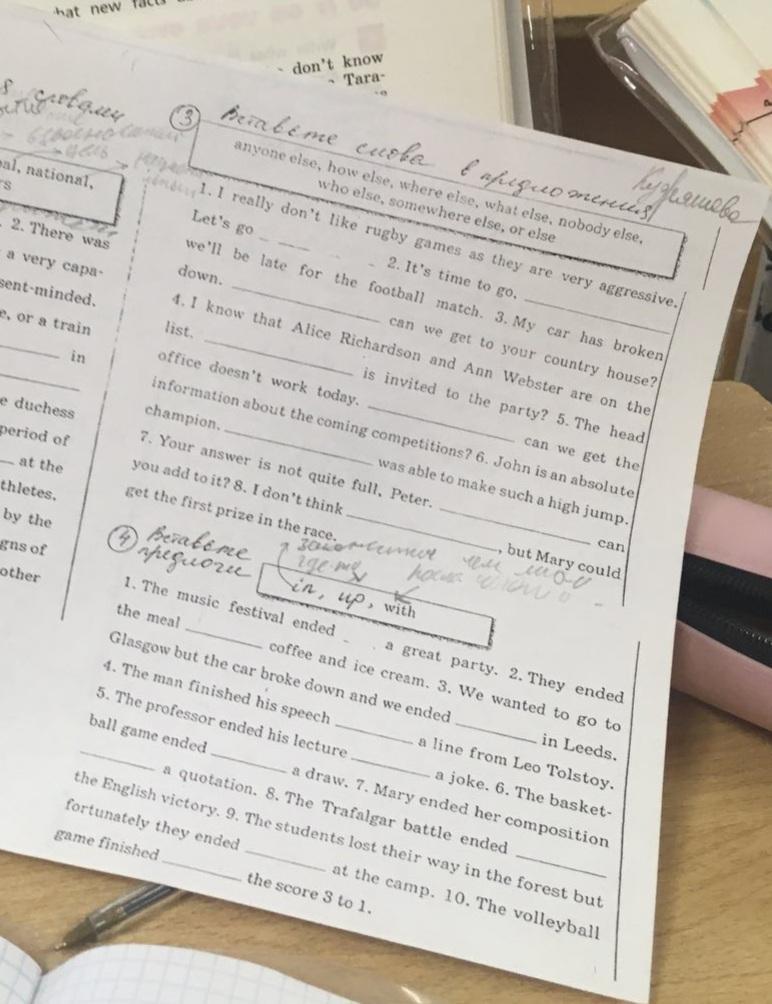 hat new facts
don't know
Tara-
словами
al, national,
rs
2. There was
a very capa-
sent-minded.
e, or a train
______ in
e duchess
period of
at the
thletes,
by the
gns of
other
③ Вставьте слова в предложения
anyone else, how else, where else, what else, nobody else,
who else, somewhere else, or else
1. I really don't like rugby games as they are very aggressive.
Let's go ______. 2. It's time to go, ______
we'll be late for the football match. 3. My car has broken
down. ______ can we get to your country house?
4. I know that Alice Richardson and Ann Webster are on the
list. ______ is invited to the party? 5. The head
office doesn't work today. ______ can we get the
information about the coming competitions? 6. John is an absolute
champion. ______ was able to make such a high jump.
7. Your answer is not quite full, Peter. ______ can
you add to it? 8. I don't think ______, but Mary could
get the first prize in the race.
④ Вставьте
предлоги
in, up, with
1. The music festival ended ______ a great party. 2. They ended
the meal ______ coffee and ice cream. 3. We wanted to go to
Glasgow but the car broke down and we ended ______ in Leeds.
4. The man finished his speech ______ a line from Leo Tolstoy.
5. The professor ended his lecture ______ a joke. 6. The basket-
ball game ended ______ a draw. 7. Mary ended her composition
______ a quotation. 8. The Trafalgar battle ended ______
the English victory. 9. The students lost their way in the forest but
fortunately they ended ______ at the camp. 10. The volleyball
game finished ______ the score 3 to 1.